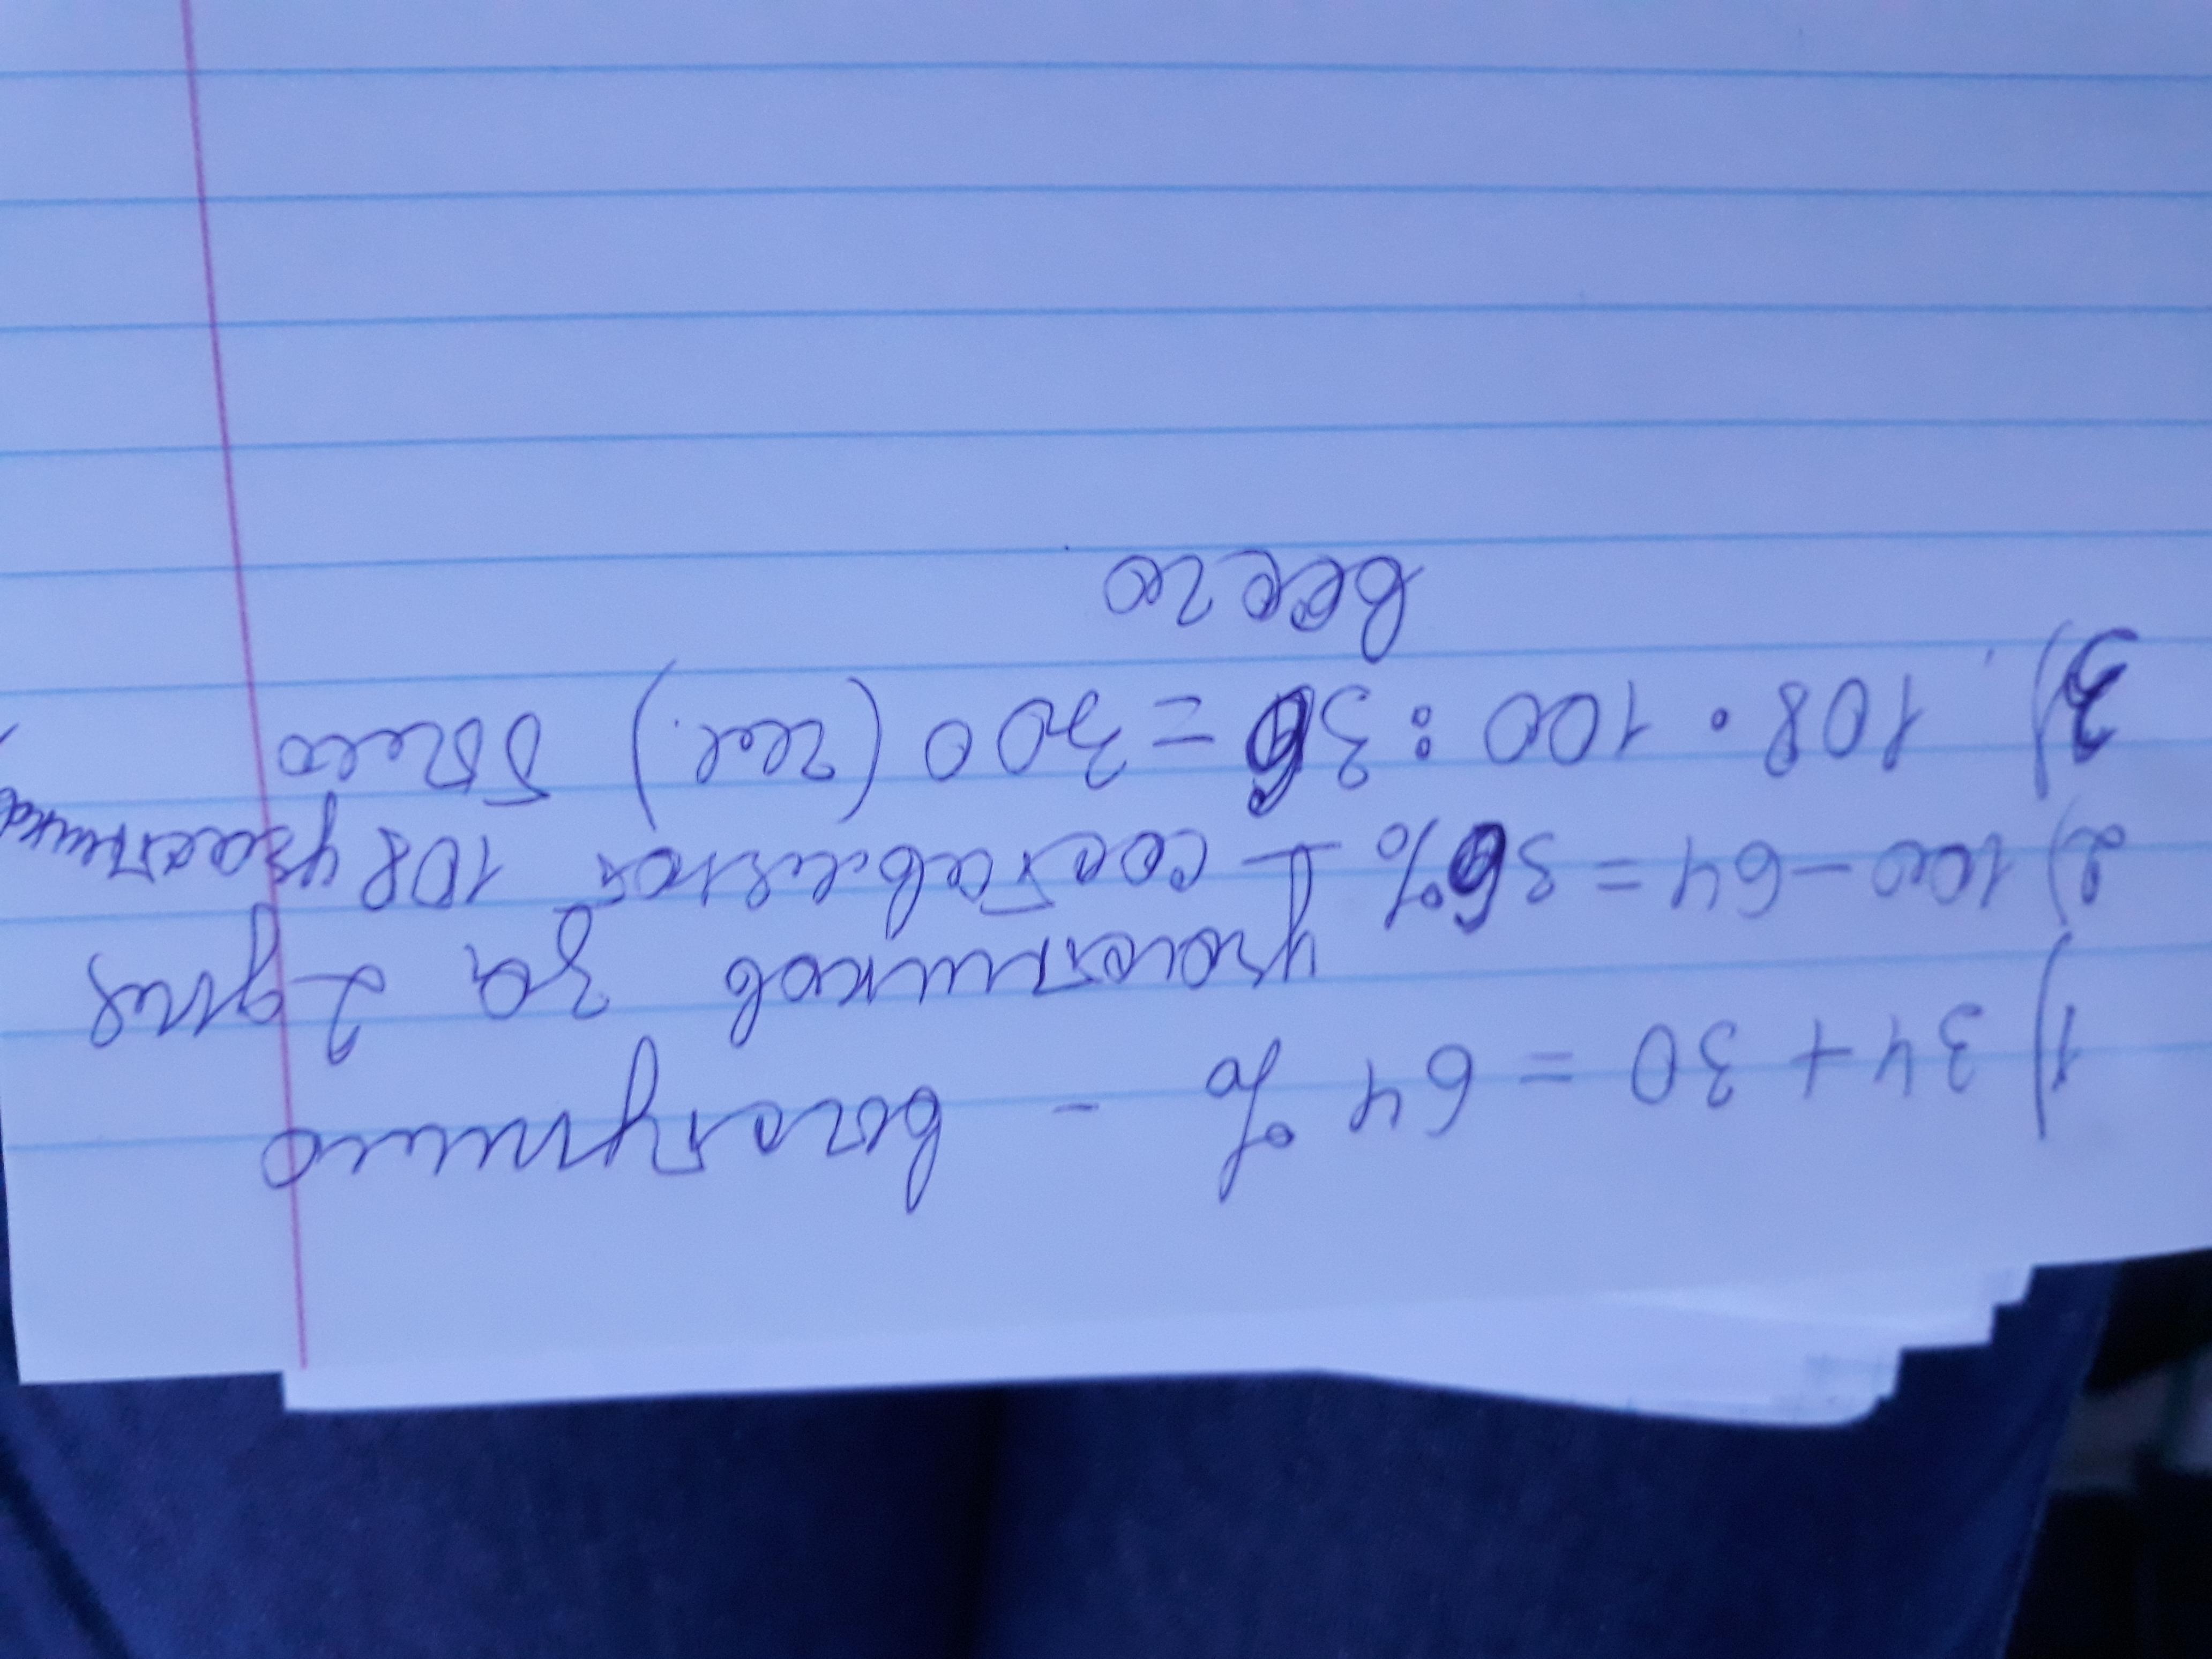 1) 34 + 30 = 64 % - выступило
участников за 2 дня
2) 100 - 64 = 36% составляют 108 участника
3) 108 • 100 : 36 = 300 (чел.) было
всего